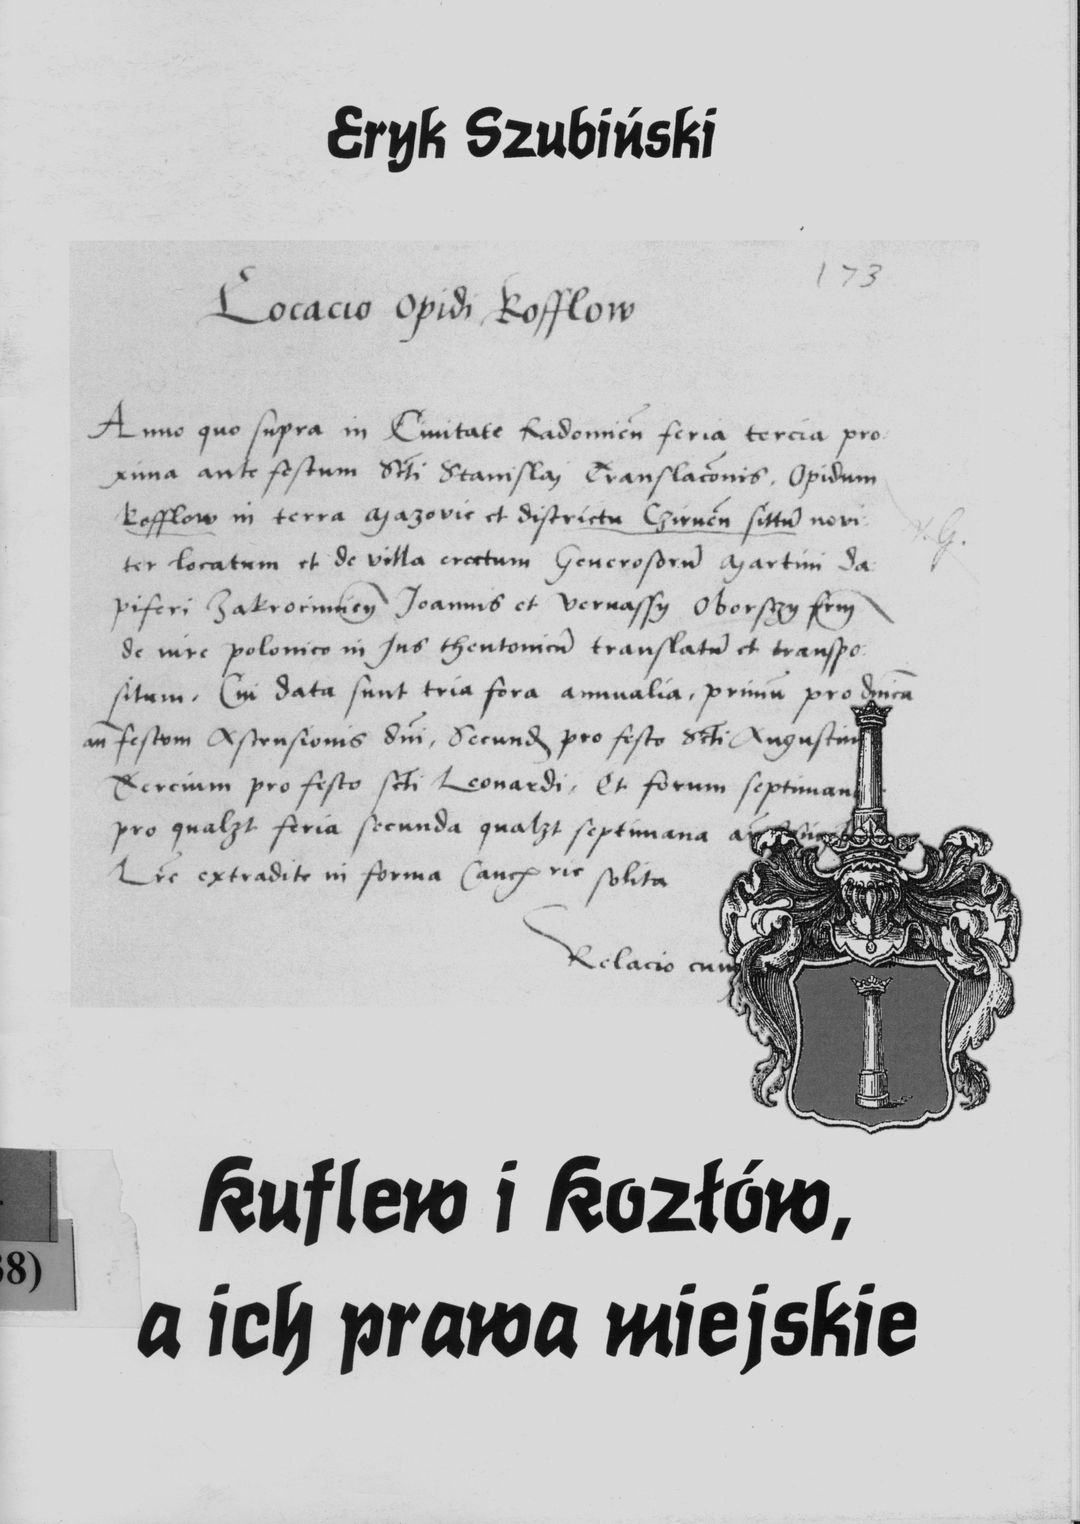 Eryk Szubiński
173
Locacio Opidi Kofflow
Anno quo supra in Civitate Radomien̄ feria tercia pro
xima ante festum Scti Stanislaj Translacōnis, Opidum
Kofflow in terra Mazovie et districtu Czirnen̄ sittū novi
ter locatum et de villa erectum Generosorū Martini da
piferi Zakrocimien Joannis et
de iure polonico in Jus theutonicū translatū et transpo
situm, Cui data sunt tria fora annualia, primū pro dnicā
an̄ festum Ascensionis dni, Secund pro festo Scti Augustini
Tercium pro festo scti Leonardi, Et forum septimana
pro qualzt feria secunda qualzt septimana
Lrē extradite in forma solita
Relacio cuiu
Kuflew i Kozłów,
a ich prawa miejskie
38)